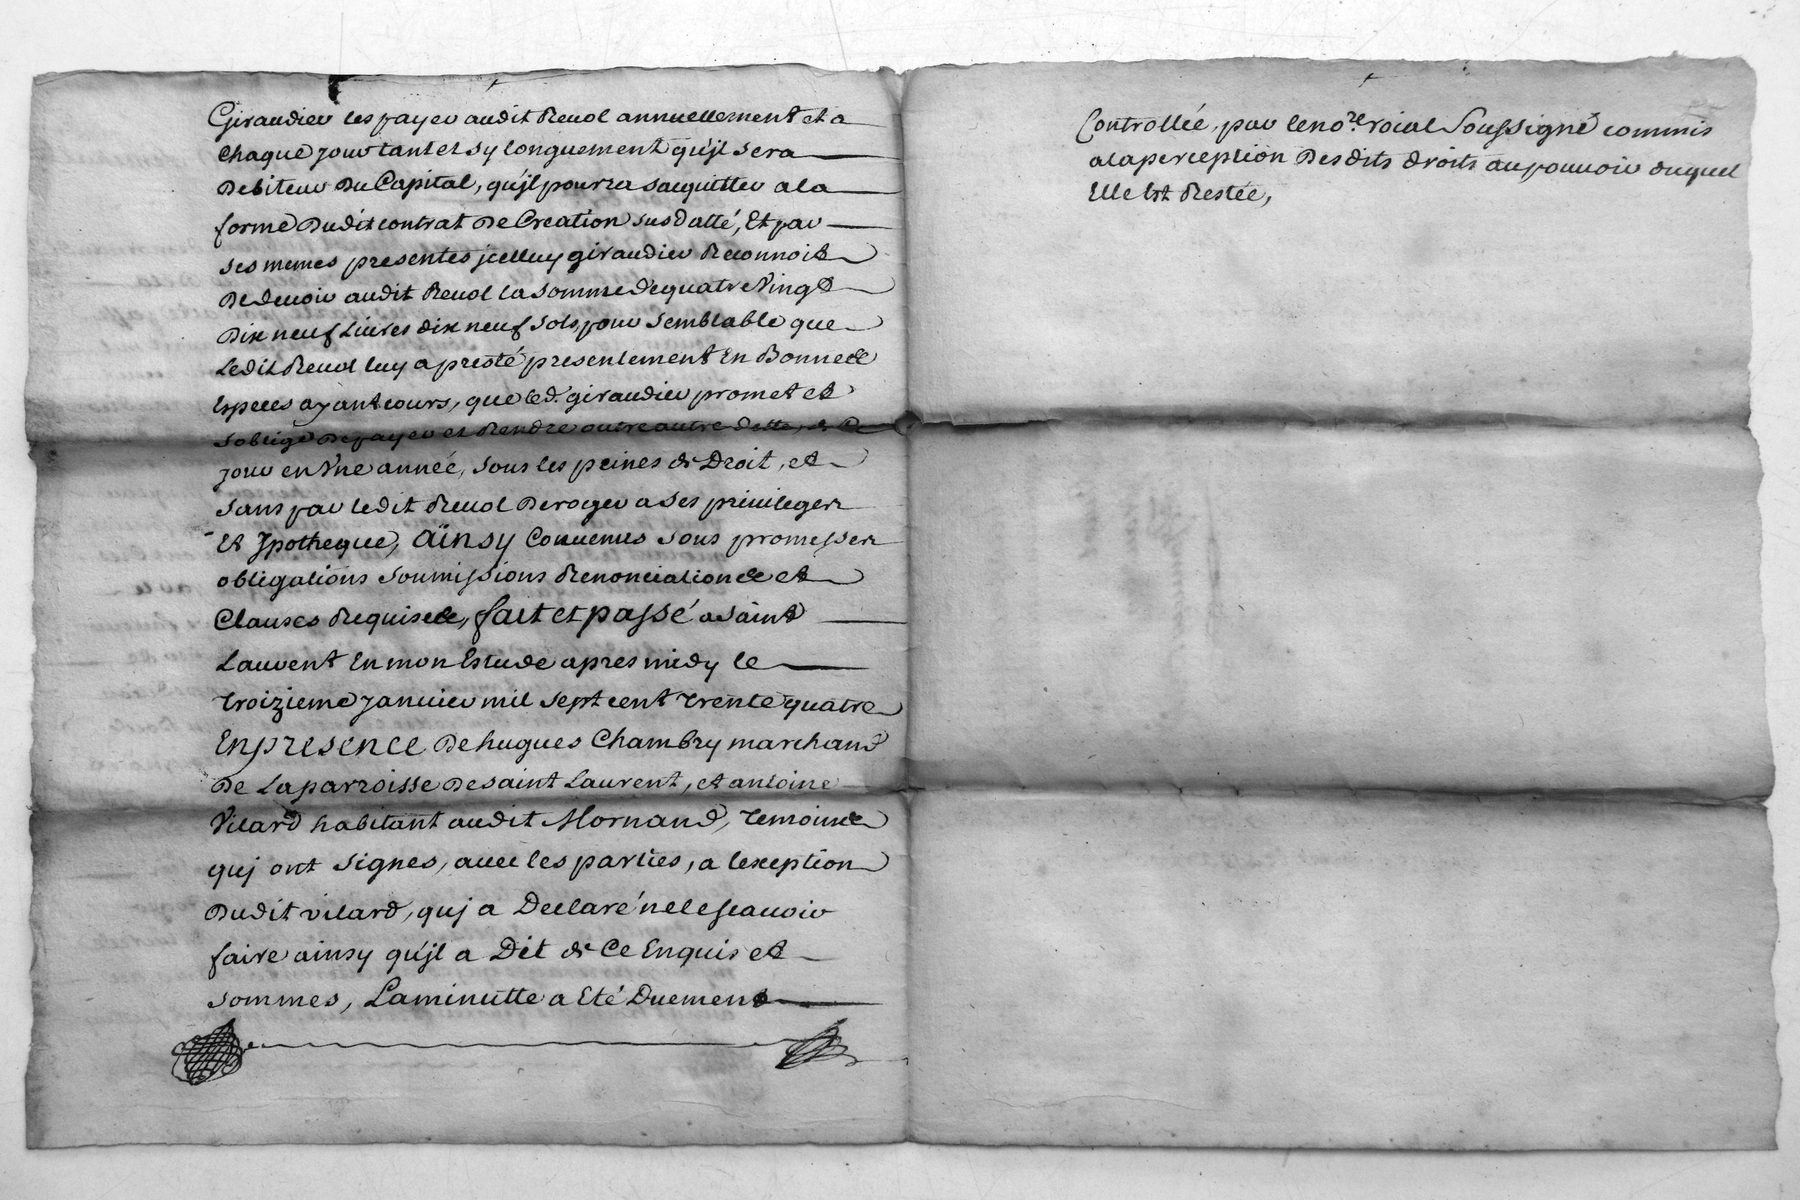 Giraudier les payer audit Revol annuellement et a
chaque jour tant et sy longuement qu'jl sera
Debiteur Du Capital, qu'jl pourra sacquitter a la
forme Dudit contrat De Creation susdatté, Et par
ses memes presentes jcelluy giraudier Reconnoit
De devoir audit Revol la somme de quatre Vingt
Dix neuf Livres dix neuf sols, pour semblable que
Ledit Revol luy a presté presentement En Bonnes
Especes ayant cours, que led.t giraudier promet et
s'oblige De payer et Rendre outre autre dette, de Ce
jour en Vne année, sous les peines de Droit, et
sans par ledit Revol Deroger a ses privileges
Et Jpotheque, Aïnsy Convenus sous promesses
obligations soumissions Renonciations et
Clauses Requises, fait et passé a saint
Laurent En mon Estude apres midy le
troizieme janvier mil sept cent trente quatre
En presence De hugues Chambry marchand
De La parroisse De saint Laurent, et antoine
Vilard habitant audit Mornand, temoins
quj ont signes, avec les parties, a lexeption
Dudit vilard, quj a Declaré ne le scavoir
faire ainsy qu'jl a Dit de Ce Enquis et
sommes, La minutte a Eté Duement
Controllée, par le no.re roial Soussigné commis
a la perception Desdits droits au pouvoir duquel
Elle Est Restée,